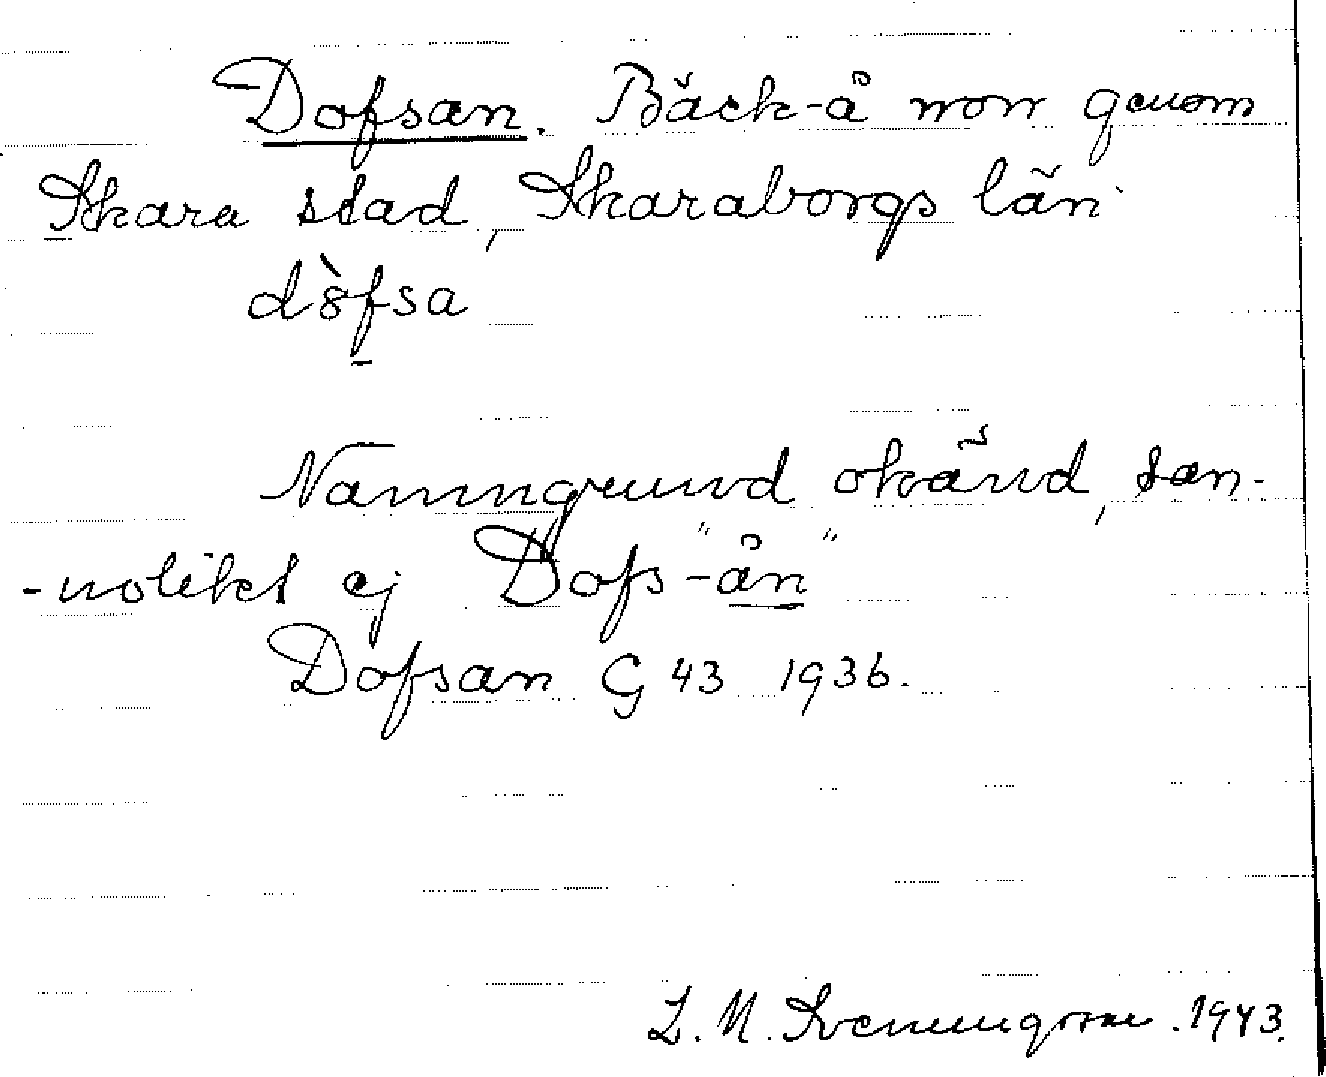 Dofsan. Bäck-å som genom
Skara stad, Skaraborgs län
dòfsa
Namngrund okänd, san-
-nolikt ej Dofs-"ån"
Dofsan G 43 1936.
L. M. Svenungsson. 1943.